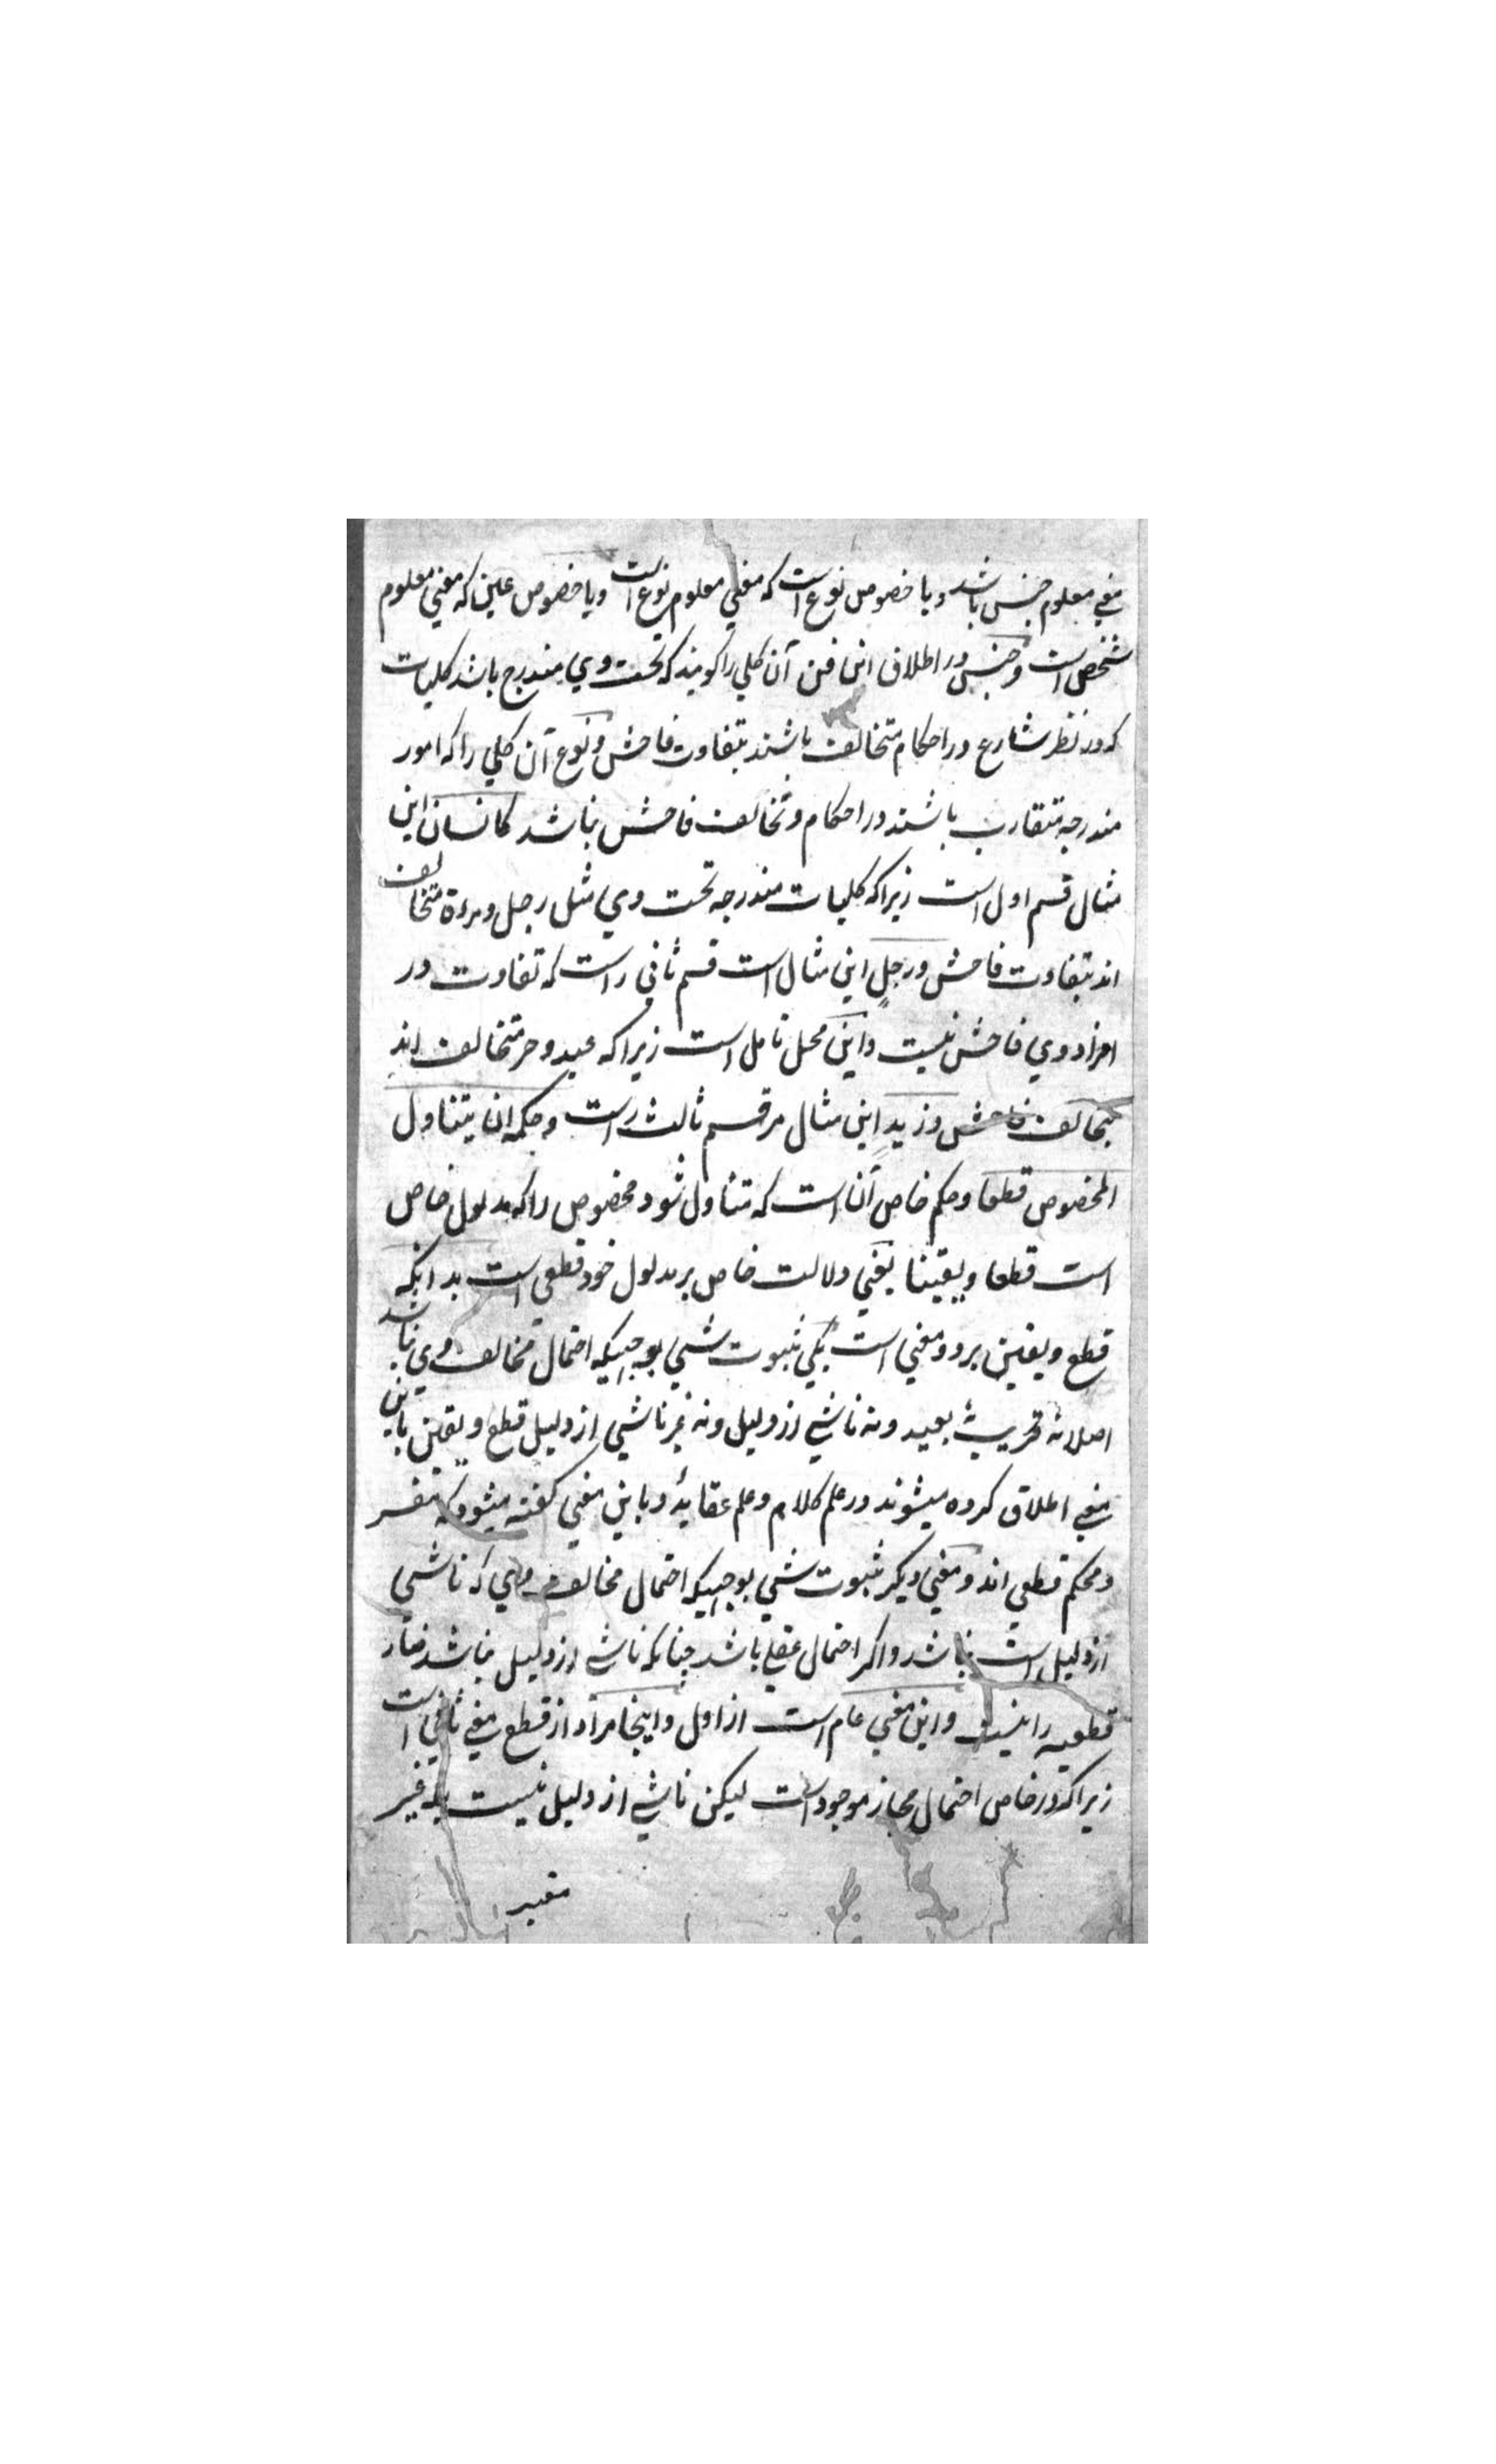 معنی معلوم جنس باشد و یا خصوص نوع است که معنی معلوم نوع است و یا خصوص عین که معنی معلوم
شخص است و جنس در اطلاق این فن آن کلی را کویند که تحت وی مندرج باشد کلیات
که در نظر شارع در احکام متخالف باشند بتفاوت فاحش و نوع آن کلی را که امور
مندرجه متقارب باشند در احکام و تخالف فاحش نباشد کانسان این
مثال قسم اول است زیرا که کلیات مندرجه تحت وی مثل رجل و مرءة متخالف
اند بتفاوت فاحش و رجلٍ این مثال است قسم ثانی را است که تفاوت در
افراد وی فاحش نیست و این محل تامل است زیرا که عبد و حر متخالف اند
بتخالف فاحش و زیدٍ این مثال مر قسم ثالث راست و حکمه ان یتناول
المخصوص قطعا و حکم خاص آن است که متناول شود مخصوص را که مدلول خاص
است قطعا و یقینا یعنی دلالت خاص بر مدلول خود قطعی است بدانکه
قطع و یقین بر دو معنی است یکی ثبوت شی بوجهیکه احتمال مخالف وی نباشد
اصلا نه قریب نه بعید و نه ناشی از دلیل و نه غیر ناشی از دلیل قطع و یقین باین
معنی اطلاق کرده میشوند در علم کلام و علم عقاید و باین معنی کفته میشود که مفسر
و محکم قطعی اند و معنی دیکر ثبوت شی بوجهیکه احتمال مخالف وی که ناشی
از دلیل است نباشد و اکر احتمال عقلی باشد چنانکه ناشی از دلیل نباشد
قطعیه را نیست و این معنی عام است از اول و اینجا مراد از قطع معنی ثانی است
زیرا که در خاص احتمال مجاز موجود است لیکن ناشی از دلیل نیست بلکه غیر
معتبر